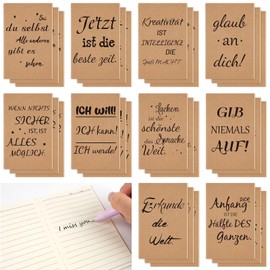 Sei
du selbst,
Alle anderen
gibt es
schon.
Jetzt
ist die
beste zeit.
Kreativität
IST
INTELLIGENZ
DIE
Spaß MACHT
glaub
an
dich!
WENN NICHTS
SICHER
IST, IST
ALLES
MÖGLICH.
ICH will!
ICH kann!
ICH werde!
Lachen
ist die
schönste
Sprache
der
Welt.
GIB
NIEMALS
AUF!
I miss you
Erkunde
die
Welt.
Anfang
IST DIE
Hälfte DES
Ganzen.